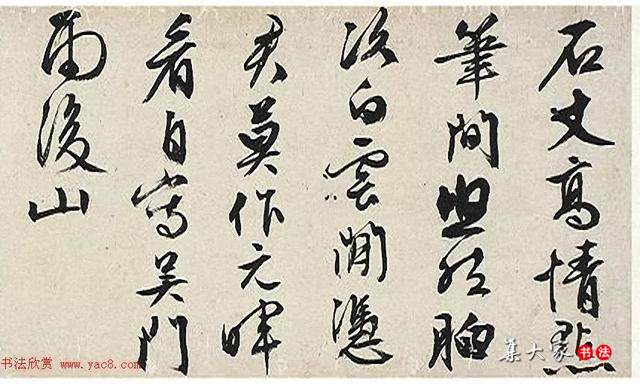 石丈高情點
筆間坦然胸
次白雲閒憑
君莫作元暉
看自寫吳門
雨後山
书法欣赏 www.yac8.com
集大家 书法